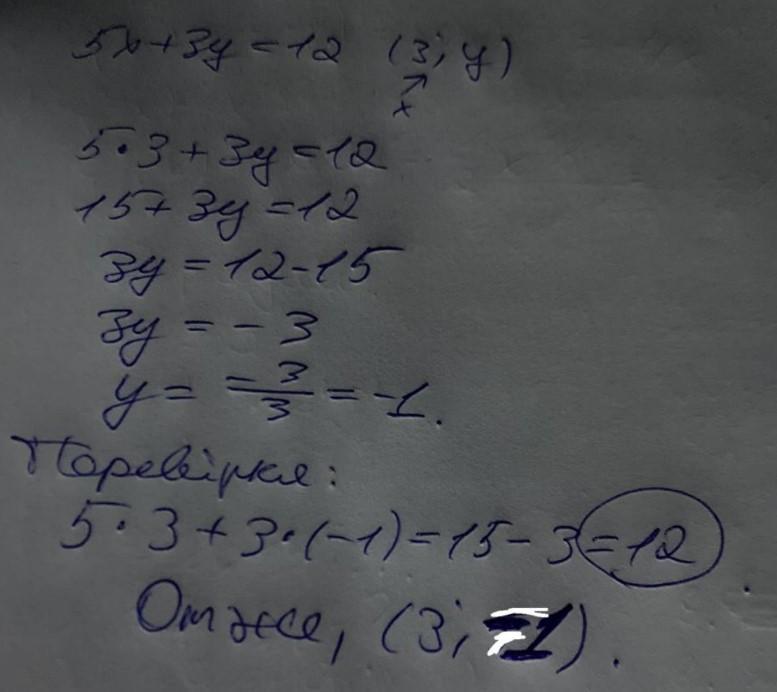 5x+3y=12 (3; y)
↗
x
5·3+3y=12
15+3y=12
3y=12-15
3y=-3
y=-3/3=-1.
Перевірка:
5·3+3·(-1)=15-3=12.
Отже, (3; -1).